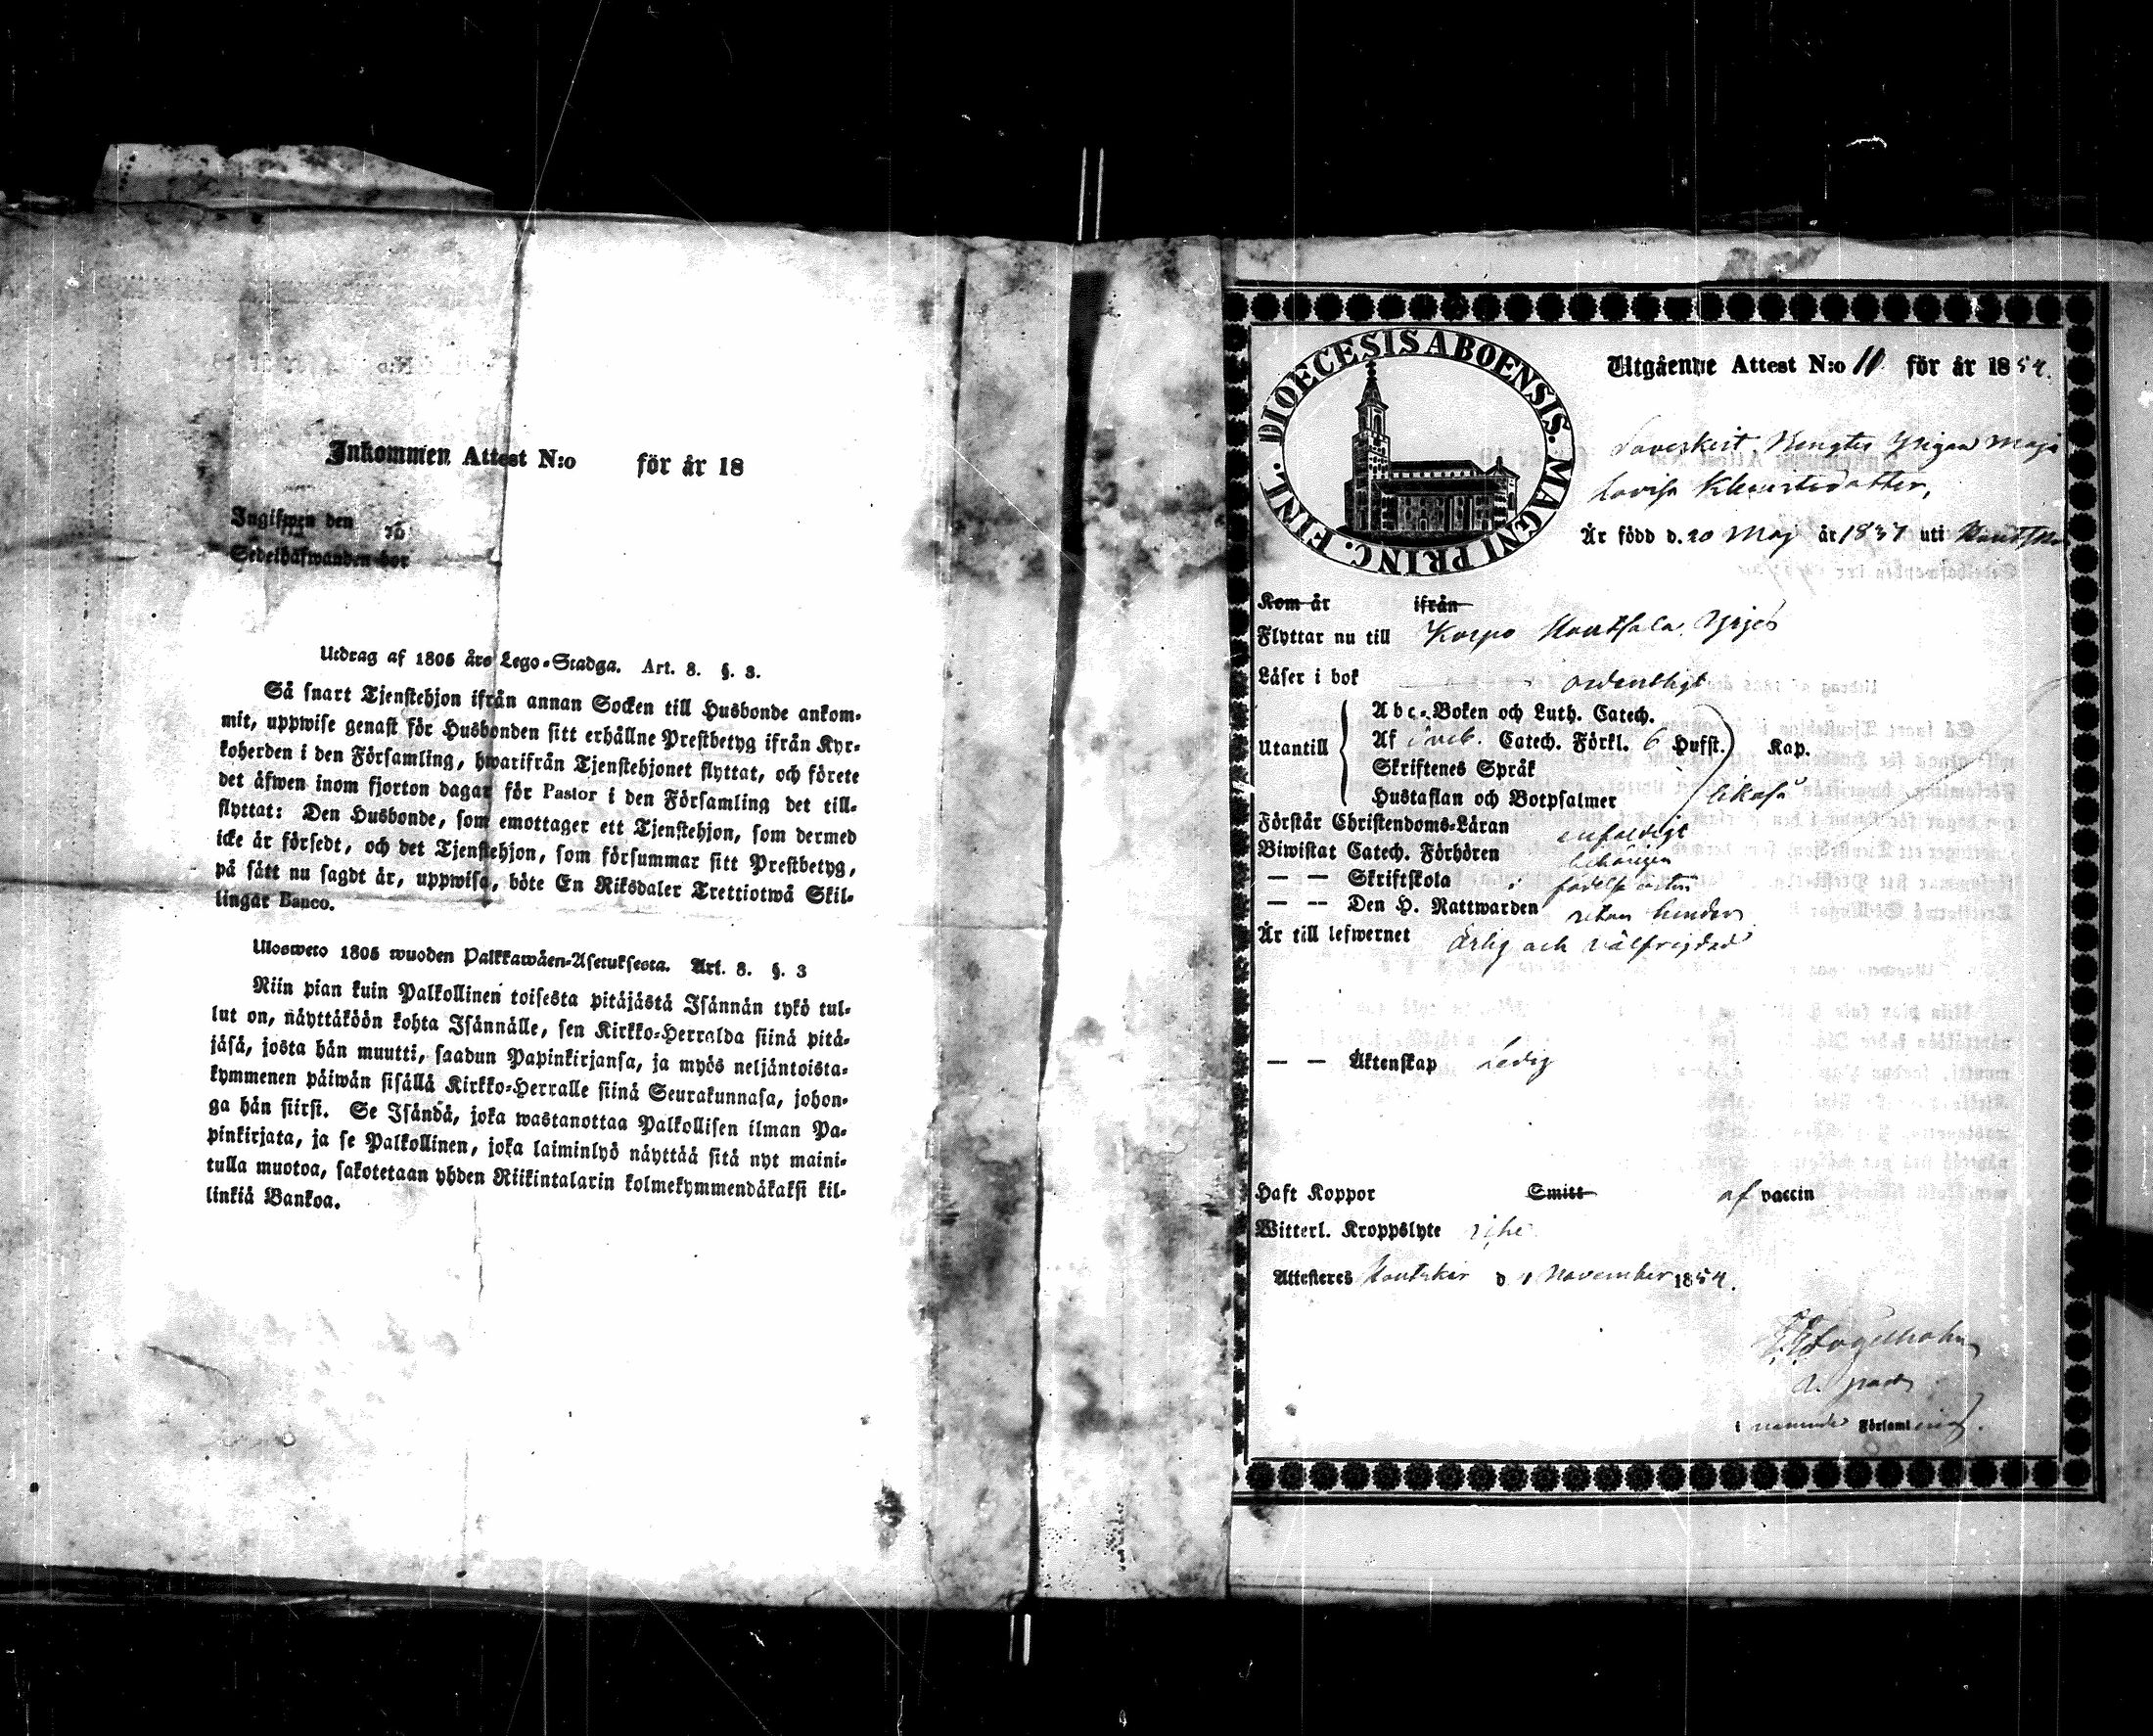 Inkommen Attest N:o för år 18
Ingifwen den
Sedelhafwanden bor
Utdrag af 1805 års Lego-Stadga. Art. 8. §. 3.
Så snart Tjenstehjon ifrån annan Socken till Husbonde ankom-
mit, uppwise genast för Husbonden sitt erhållne Prestbetyg ifrån Kyr-
koherden i den Församling, hwarifrån Tjenstehjonet flyttat, och förete
det äfwen inom fjorton dagar för Pastor i den Församling det till-
flyttat: Den Husbonde, som emottager ett Tjenstehjon, som dermed
icke är försedt, och det Tjenstehjon, som försummar sitt Prestbetyg,
på sätt nu sagdt är, uppwisa, böte En Riksdaler Trettiotwå Skil-
lingar Banco.
Ulosweto 1805 wuoden Palkkawäen-Asetuksesta. Art. 8. §. 3
Niin pian kuin Palkollinen toisesta pitäjästä Isännän tykö tul-
lut on, näyttäköön kohta Isännälle, sen Kirkko-Herralda siinä pitä-
jäsä, josta hän muutti, saadun Papinkirjansa, ja myös neljäntoista-
kymmenen päiwän sisällä Kirkko-Herralle siinä Seurakunnasa, johon-
ga hän siirsi. Se Isändä, joka wastanottaa Palkollisen ilman Pa-
pinkirjata, ja se Palkollinen, joka laiminlyö näyttää sitä nyt maini-
tulla muotoa, sakotetaan yhden Riikintalarin kolmekymmendäkaksi kil-
linkiä Bankoa.
DIOECESIS ABOENSIS. MAGNI PRINC. FINL.
Utgående Attest N:o 11 för år 1854.
Bengtes Pigan Maja
Lovisa
Är född d. 20 Maj år 1837 uti
Kom år ifrån
Flyttar nu till Korpo
Läser i bok ordentligt
Utantill
Abc-Boken och Luth. Catech.
Af Catech. Förkl. 6 Hufst. Kap.
Skriftenes Språk
Hustaflan och Botpsalmer likaså
Förstår Christendoms-Läran enfaldigt
Biwistat Catech. Förhören behörigen
— — Skriftskola
— — Den H. Nattwarden utan hinder
Är till lefwernet ärlig och välfrejdad
— — Äktenskap Ledig
Haft Koppor Smitt af vaccin
Witterl. Kroppslyte
Attesteres Houtskär d November 1854.
i Församl